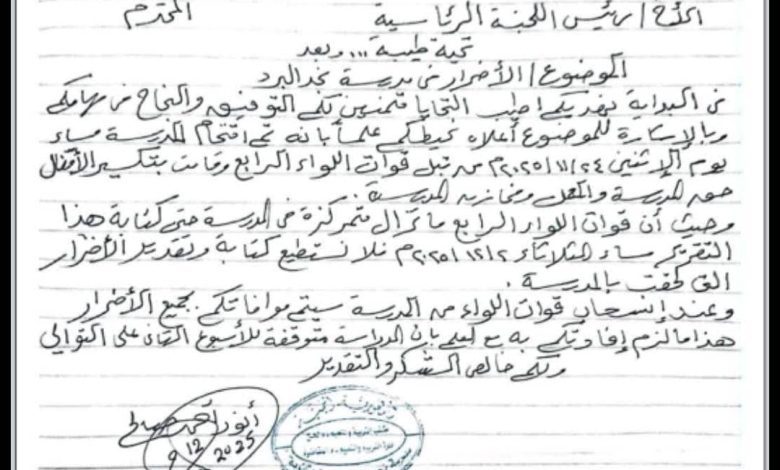 الأخ / رئيس اللجنة الرئاسية المحترم
تحية طيبة ... وبعد
الموضوع / الأضرار في مدرسة نجد البرد
في البداية نهديكم أطيب التحايا متمنين لكم التوفيق والنجاح في مهامكم
وبالإشارة للموضوع أعلاه نحيطكم علماً بأنه تم اقتحام المدرسة مساء
يوم الإثنين ٢٠٢٥/١١/٢٤م من قبل قوات اللواء الرابع وقامت بتكسير الأقفال
حق المدرسة والمعمل ومخازن المدرسة .
وحيث أن قوات اللواء الرابع ما تزال متمركزة في المدرسة حتى كتابة هذا
التقرير مساء الثلاثاء ٢٠٢٥/١٢/٢م فلا نستطيع كتابة وتقدير الأضرار
التي لحقت بالمدرسة .
وعند إنسحاب قوات اللواء من المدرسة سيتم موافاتكم بجميع الأضرار
هذا ما لزم إفادتكم به مع العلم بان الدراسة متوقفة للأسبوع الثاني على التوالي
ولكم خالص الشكر والتقدير
أنور أحمد
9/12/2025